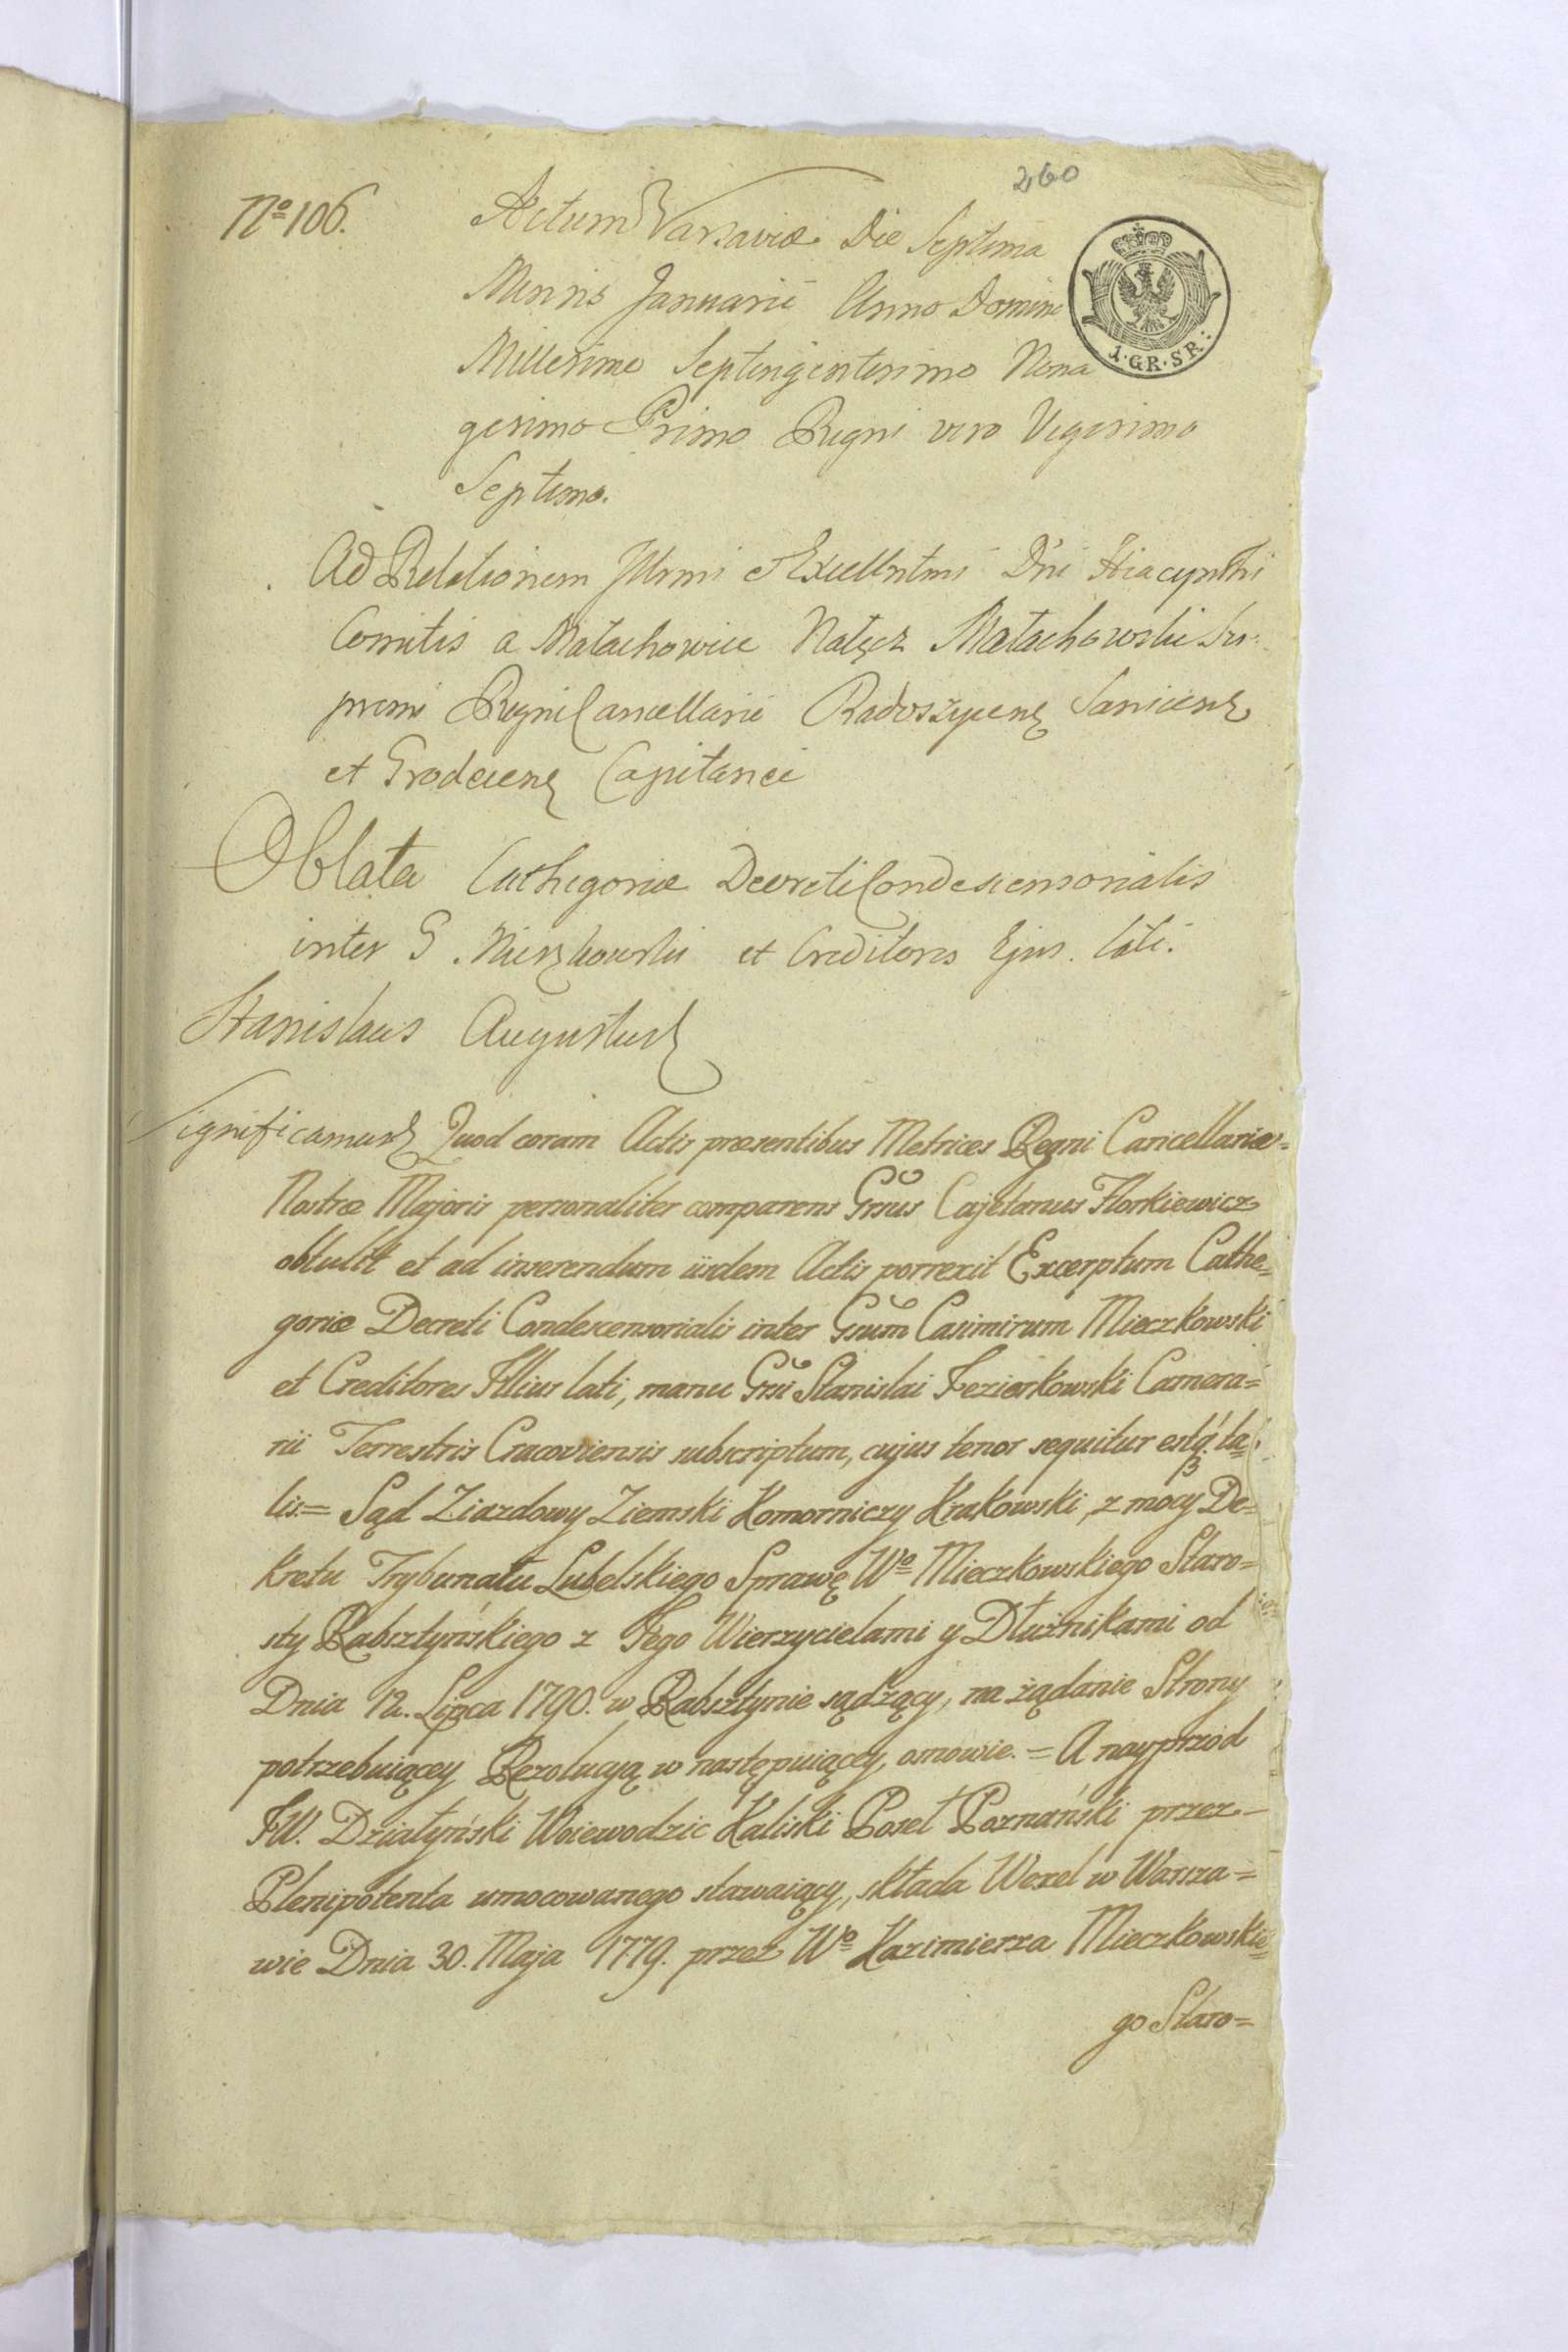 260
No 106.
Actum Varsaviæ Die Septima
Mensis Januarii Anno Domini
Millesimo Septingentesimo Nona
gesimo Primo Regni vero Vigesimo
Septimo.
1·GR·SR:
Ad Relationem Illrmi et Excellntmi Dni Hiacynthi
Comitis a Małachowice Nałęcz Małachowski Su
premi Regni Cancellarii Radoszycens Sanicens
et Grodecens Capitanei
Oblata Cathegoriæ Decreti Condescensorialis
inter G Mieczkowski et Creditores Ejus. lati.
Stanislaus Augustus
Significamus Quod coram Actis præsentibus Metrices Regni Cancellariæ=
Nostræ Majoris personaliter comparens Gnsus Cajetanus Florkiewicz
obtulit et ad inserendum iisdem Actis porrexit Excerptum Cathe=
goriæ Decreti Condescensorialis inter Gsum Casimirum Mieczkowski
et Creditores Illius lati, manu Gsi Stanislai Jezierkowski Camera=
rii Terrestris Cracoviensis subscriptum, cujus tenor sequitur estq. ta=
lis.= Sąd Ziazdowy Ziemski Komorniczy Krakowski, z mocy De=
kretu Trybunału Lubelskiego Sprawę Wo Mieczkowskiego Staro=
sty Rabsztyńskiego z Jego Wierzycielami y Dłużnikami od
Dnia 12. Lipca 1790. w Rabsztynie sądzący, na żądanie Strony
potrzebuiącey Rezolucyą w następuiącey, osnowie.= A nayprzod
JW. Działyński Woiewodzic Kaliski Poseł Poznański przez=
Plenipotenta umocowanego stawaiący, składa Wexel w Warsza=
wie Dnia 30. Maja 1779. przez Wo Kazimierza Mieczkowskie=
go Staro=